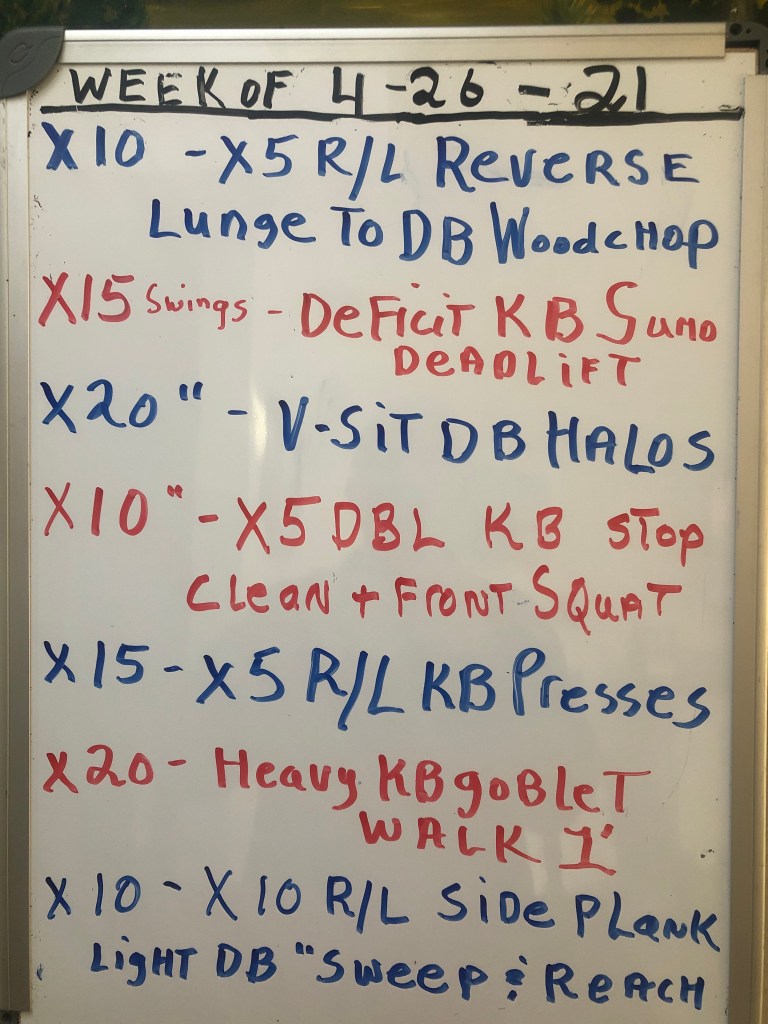 WEEK OF 4-26-21
X10 - X5 R/L REVERSE
Lunge To DB WoodcHop
X15 Swings - DeFiciT KB Sumo
DEADLiFT
X20 " - V-SiT DB HALOS
X10 " - X5 DBL KB STop
CLeAN + FRONT SQuAT
X15 - X5 R/L KB Presses
X20 - Heavy KB goBleT
WALK 1'
X10 - X10 R/L SiDe PLaNK
LigHT DB "Sweep & ReACH